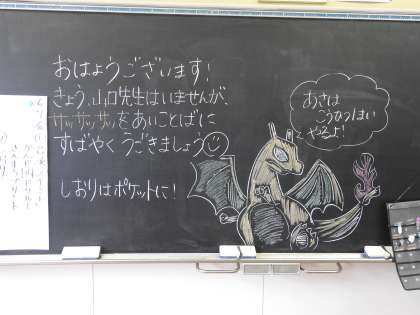 おはようございます!
きょう、山口先生はいませんが、
サッサッサッをあいことばに
すばやくうごきましょう
しおりはポケットに!
あさは
こうひつはい
やるよ!